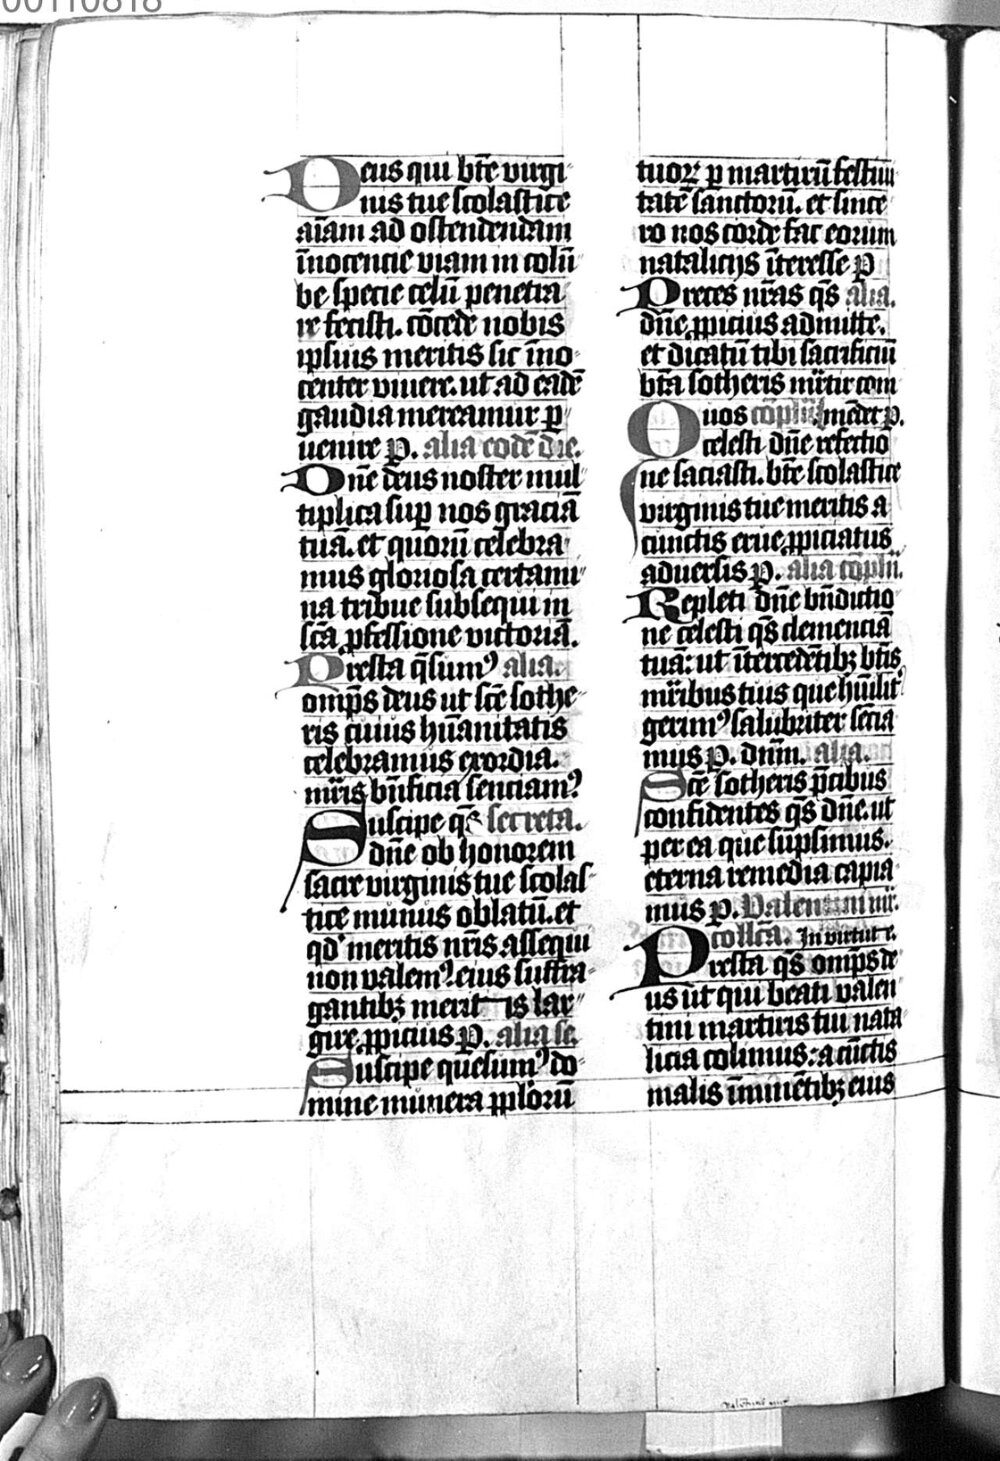 00110818
Deus qui bt̄e virgi
nis tue scolastice
aīam ad ostendendam
īnocencie viam in colū
be specie celū penetra
re fecisti. cōcede nobis
ipsius meritis sic īno
center viuere. ut ad eadē
gaudia mereamur p̱
uenire p̱. alia eodē die.
Dnē deus noster mul
tiplica sup̱ nos graciā
tuā. et quorū celebra
mus gloriosa certami
na tribue subsequi in
sc̄a ꝓfessione victoriā.
Presta q̄sumꝰ alia.
omp̄s deus ut sc̄e sothe
ris cuius hūanitatis
celebramus exordia.
nr̄is bn̄ficia senciamꝰ
Suscipe qs̄ secreta.
dn̄e ob honorem
sacre virginis tue scolas
tice munus oblatū. et
qd' meritis nr̄is assequi
non valemꝰ. eius suffra
gantibꝫ merit is lar
gire. ꝓpicius p̱. alia se.
Suscipe quesumꝰ do
mine munera pplōrū
tuoꝝ p̱ martirū festiui
tatē sanctorū. et since
ro nos corde fac eorum
natalicijs īteresse p̱
Preces nr̄as qs̄ alia.
dn̄e ꝓpicius admitte.
et dicatū tibi sacrificiū
bt̄a sotheris mr̄tir com
Quos cōplīi mēdet p̱.
celesti dn̄e refectio
ne saciasti. bt̄e scolastice
virginis tue meritis a
cunctis erue ꝓpiciatus
aduersis p̱. alia cōplīi.
Repleti dn̄e bn̄dictio
ne celesti qs̄ clemenciā
tuā: ut ītercedētibꝫ bt̄is
mr̄ibus tuis que hūilit͛
gerimꝰ salubriter sēcia
mus p̱. dnm̄. alia.
Sc̄e sotheris p̄cibus
confidentes qs̄ dn̄e. ut
per ea que sūpsimus.
eterna remedia capia
mus p̱. Valentini mr̄.
collc̄a. In virtute.
Presta qs̄ omp̄s de
us ut qui beati valen
tini martiris tui nata
licia colimus: a cūctis
malis īminētibꝫ eius